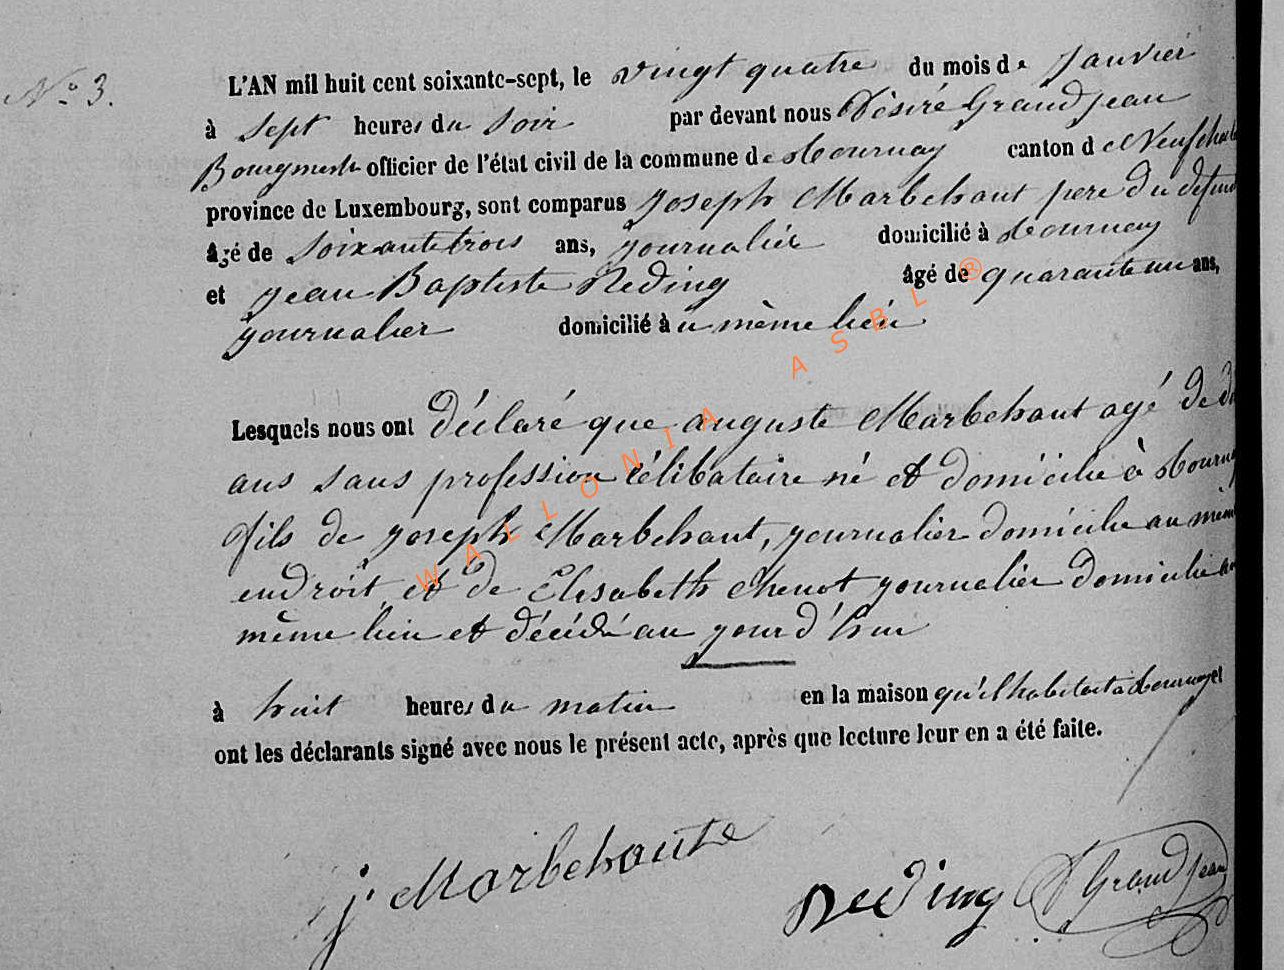 N° 3.
L'AN mil huit cent soixante-sept, le vingt quatre du mois de Janvier
à sept heures du soir par devant nous Désiré Grandjean
Bourgmestre officier de l'état civil de la commune de Tournay canton de Neufchate
province de Luxembourg, sont comparus Joseph Marbehant père du défunt
âgé de soixantetrois ans, journalier domicilié à Tournay
et Jean Baptiste Reding âgé de quarante un ans,
journalier domicilié à u même lieu
Lesquels nous ont déclaré que auguste Marbehant agé de
ans sans profession célibataire né et domicilié à Tournay
fils de Joseph Marbehant, journalier domicilie au même
endroit, et de Elisabeth Chenot journalier domicilie au
même lieu et décédé au jourd'hui
à huit heures du matin en la maison qu'il habitait à Tournay et
ont les déclarants signé avec nous le présent acte, après que lecture leur en a été faite.
j. Marbehante
Reding D Grandjean
WALLONIA ASBL ®